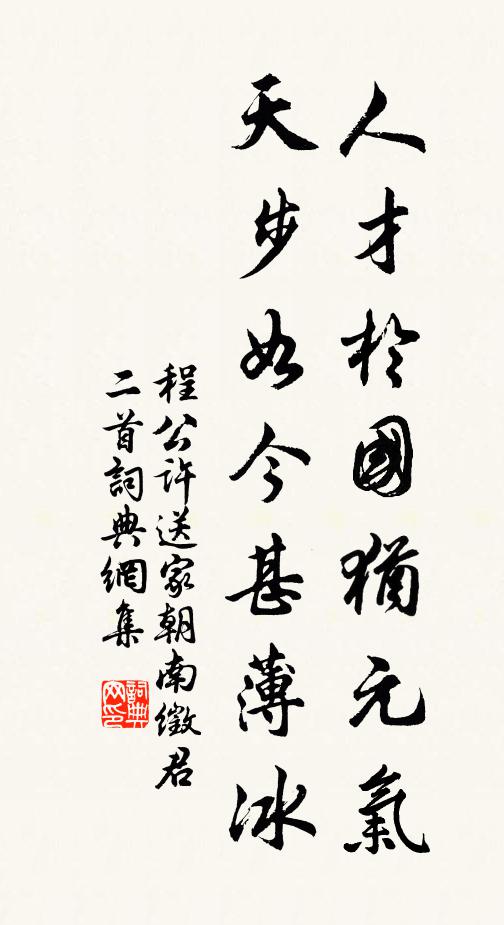 人才於國猶元氣
天步如今甚薄冰
程公許送家朝南徵君
二首詞典網集
詞典網印